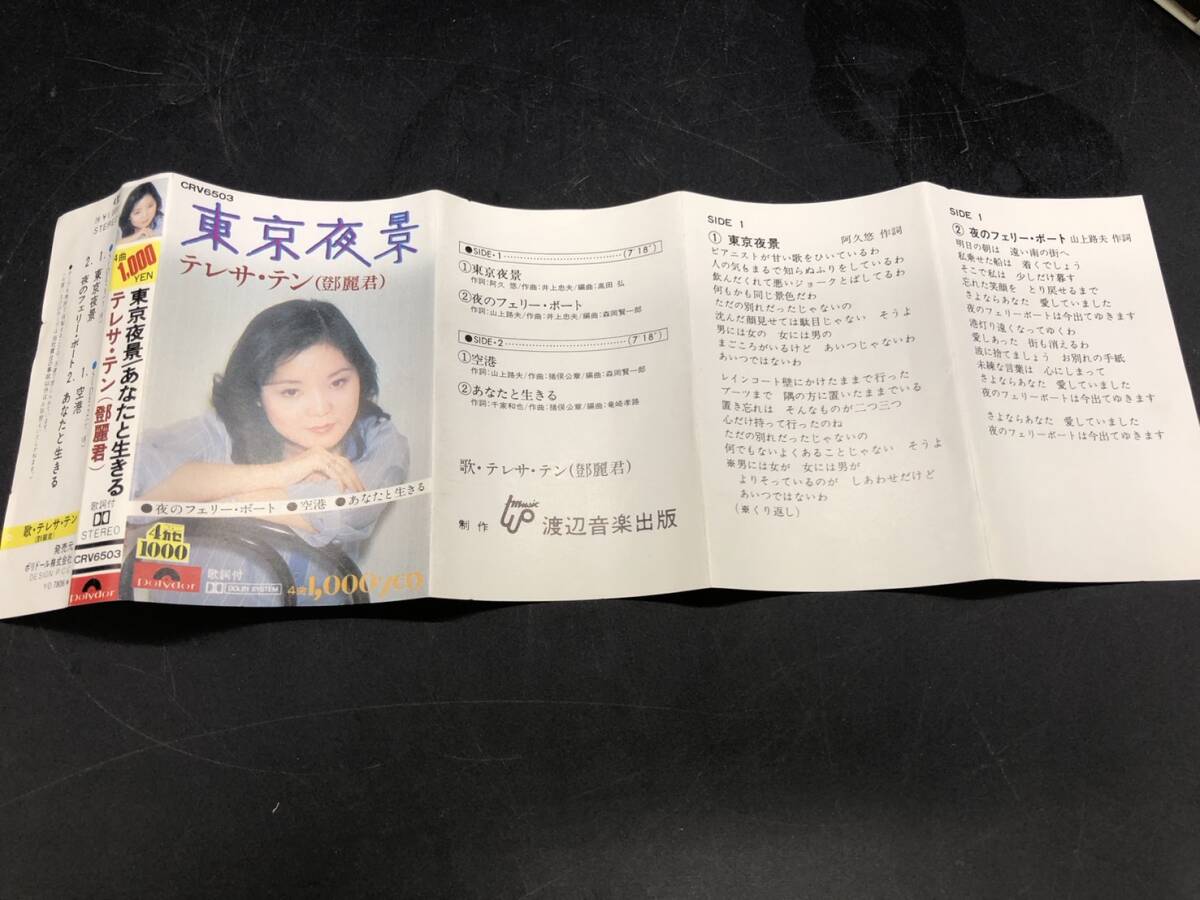 STEREO
1. 東京夜景
2. 夜のフェリー・ボート
1. 空港
2. あなたと生きる
歌・テレサ・テン
(鄧麗君)
発売元
ポリドール株式会社
4曲
1,000
YEN
東京夜景/あなたと生きる
テレサ・テン(鄧麗君)
歌詞付
STEREO
CRV6503
Polydor
CRV6503
東京夜景
テレサ・テン(鄧麗君)
●夜のフェリー・ボート ●空港 ●あなたと生きる
4カセ
1000
Polydor
歌詞付
DOLBY SYSTEM
4曲1,000YEN
●SIDE・1 (7′18″)
①東京夜景
作詞:阿久 悠/作曲:井上忠夫/編曲:高田 弘
②夜のフェリー・ボート
作詞:山上路夫/作曲:井上忠夫/編曲:森岡賢一郎
●SIDE・2 (7′18″)
①空港
作詞:山上路夫/作曲:猪俣公章/編曲:森岡賢一郎
②あなたと生きる
作詞:千家和也/作曲:猪俣公章/編曲:竜崎孝路
歌・テレサ・テン(鄧麗君)
制作 music 渡辺音楽出版
SIDE 1
① 東京夜景 阿久悠 作詞
ピアニストが甘い歌をひいているわ
人の気もまるで知らぬふりをしているわ
飲んだくれて悪いジョークとばしてるわ
何もかも同じ景色だわ
ただの別れだったじゃないの
沈んだ顔見せては駄目じゃない そうよ
男には女の 女には男の
まごころがいるけど あいつじゃないわ
あいつではないわ
レインコート壁にかけたままで行った
ブーツまで 隅の方に置いたままでいる
置き忘れは そんなものが二つ三つ
心だけ持って行ったのね
ただの別れだったじゃないの
何でもないよくあることじゃない そうよ
※男には女が 女には男が
よりそっているのが しあわせだけど
あいつではないわ
(※くり返し)
SIDE 1
② 夜のフェリー・ボート 山上路夫 作詞
明日の朝は 遠い南の街へ
私乗せた船は 着くでしょう
そこで私は 少しだけ暮す
忘れた笑顔を とり戻せるまで
さよならあなた 愛していました
夜のフェリーボートは今出てゆきます
港灯り遠くなってゆくわ
愛しあった 街も消えるわ
波に捨てましょう お別れの手紙
未練な言葉は 心にしまって
さよならあなた 愛していました
夜のフェリーボートは今出てゆきます
さよならあなた 愛していました
夜のフェリーボートは今出てゆきます